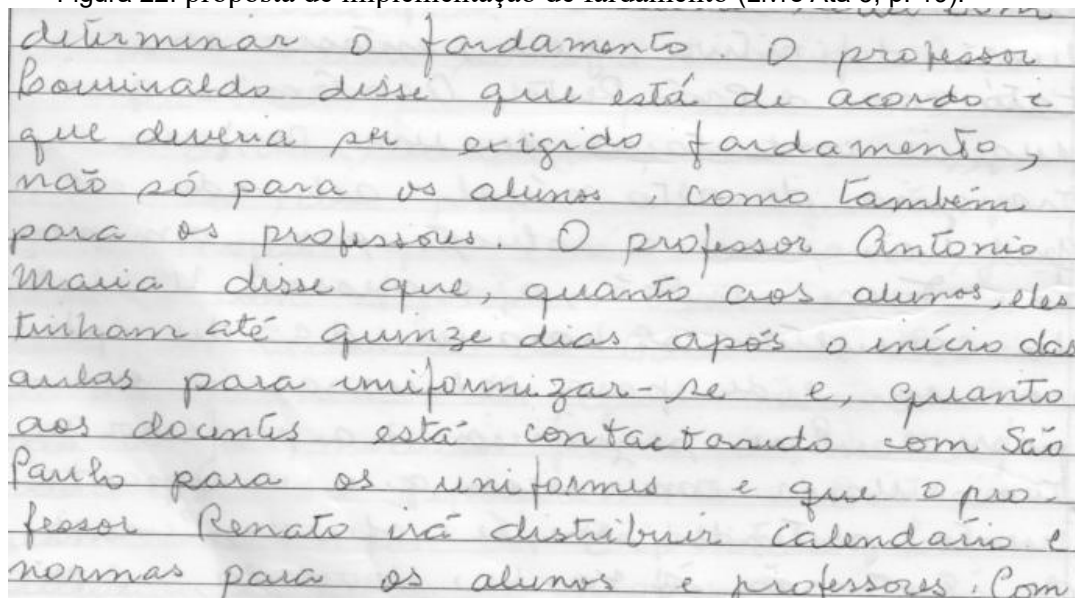 Figura 22: proposta de implementação de fardamento (Livro Ata 3, p. 10).
determinar o fardamento. O professor
disse que está de acordo e
que deveria ser exigido fardamento,
não só para os alunos, como também
para os professores. O professor Antonio
Maria disse que, quanto aos alunos, eles
tinham até quinze dias após o início das
aulas para uniformizar-se e, quanto
aos docentes está contactando com São
Paulo para os uniformes e que o pro-
fessor Renato irá distribuir calendário e
normas para os alunos e professores. Com